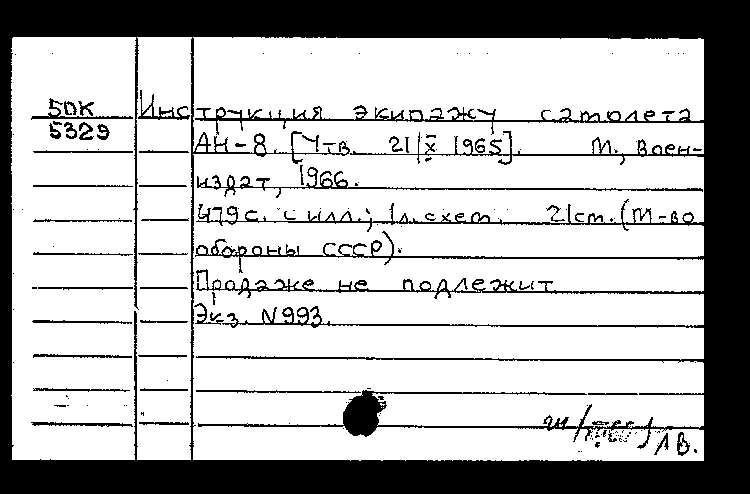 50К Инструкция экипажу самолета
5329 АН-8. [Утв. 21/X 1965]. М., Воен-
издат, 1966.
479с. с илл.; 1л.схем. 21см. (М-во
обороны СССР).
Продаже не подлежит
Экз. N993.
ЛВ.